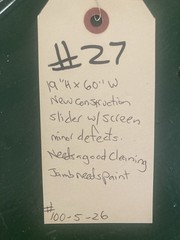 #27
19"H x 60"W
New construction
slider w/ screen
minor defects.
Needs a good cleaning
Jamb needs paint
#100-5-26